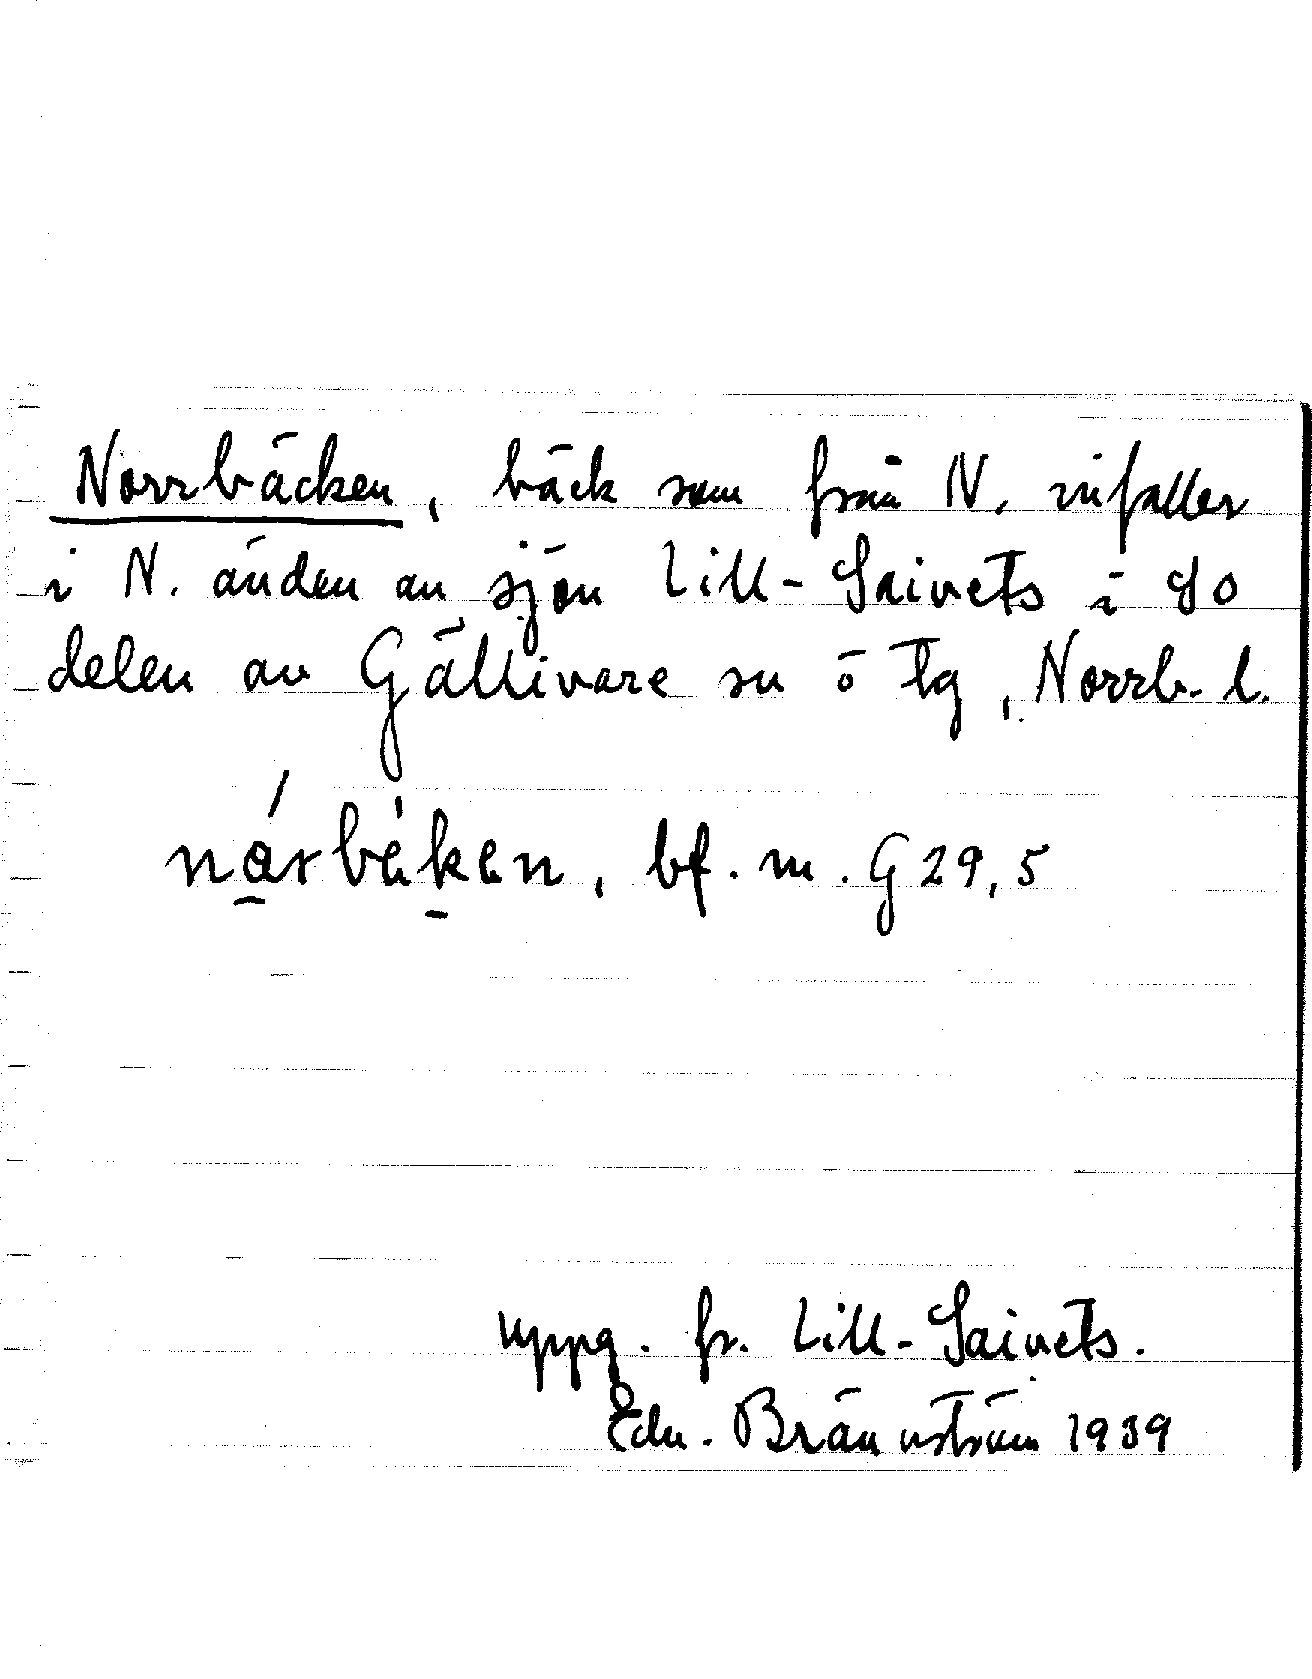 Norrbäcken, bäck som från N. infaller
i N. änden av sjön Lill-Saivets i SO
delen av Gällivare sn o tg, Norrb. l.
bf. m. G 29,5
uppg. fr. Lill-Saivets.
Edv. Brännström 1939